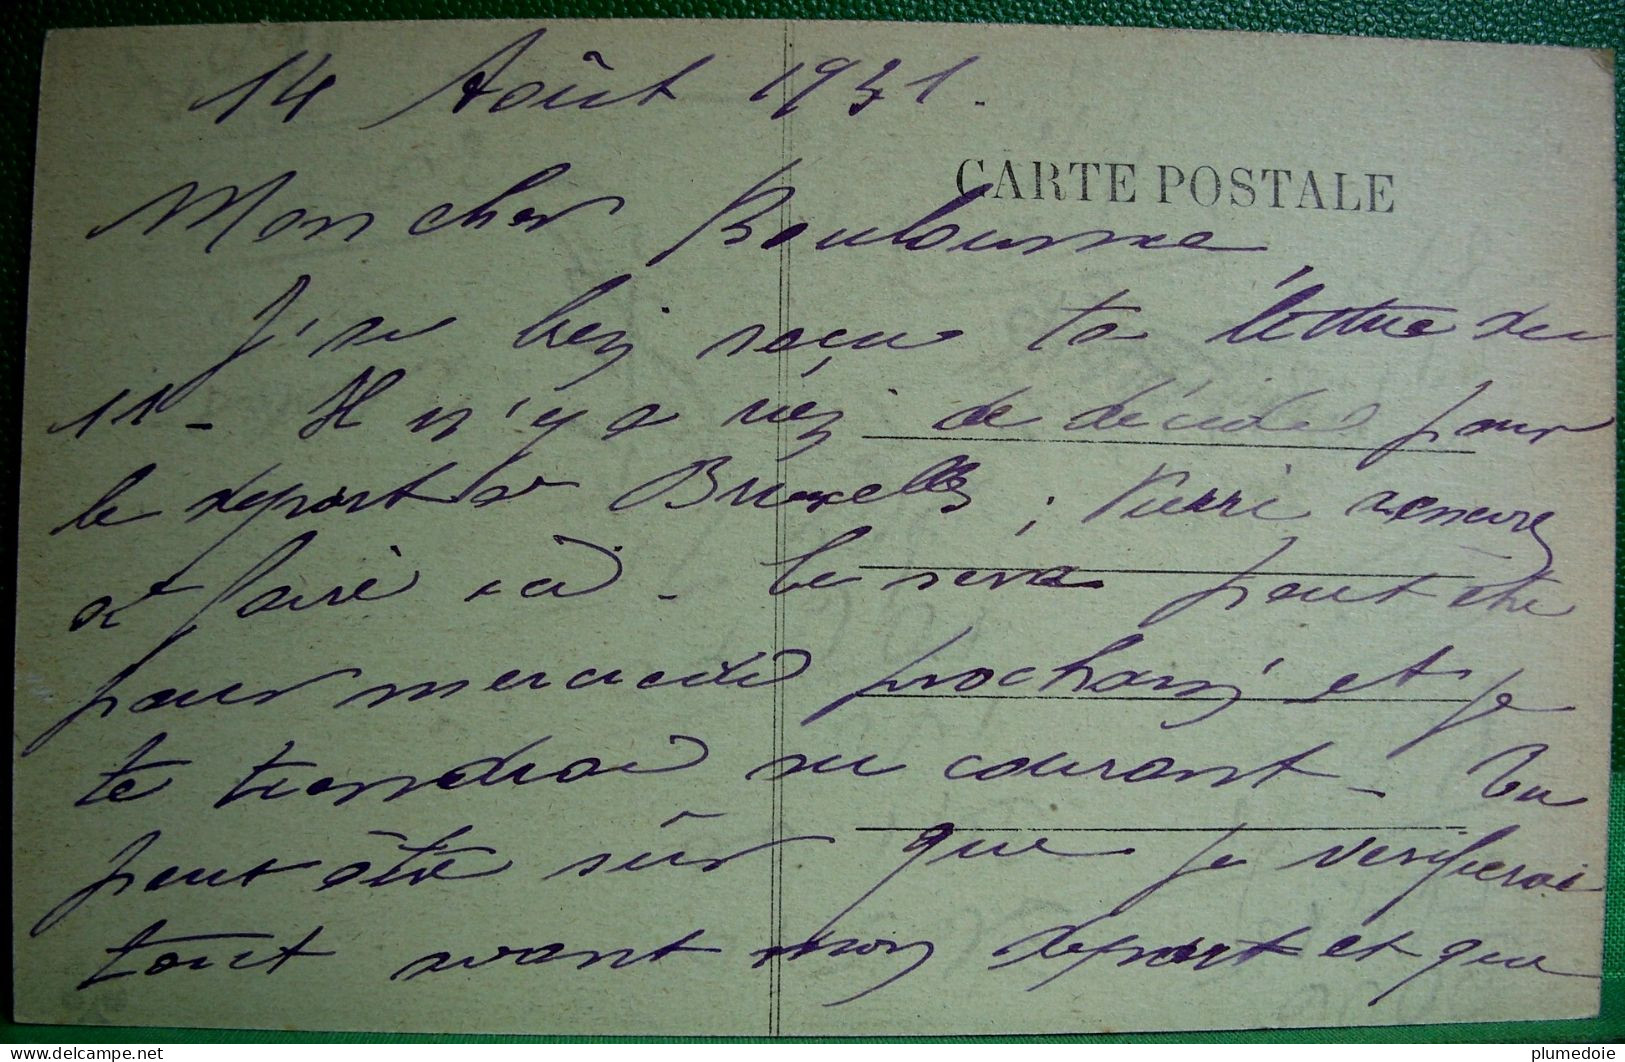 14 Août 1931.
CARTE POSTALE
Mon cher
J'ai bien reçu ta lettre du
11 - Il n'y a rien de décidé pour
le départ à Bruxelles ; Pierre
à faire ici - Ce sera peut être
pour mercredi prochain et je
te tiendrai au courant - Tu
peut être sûr que je verifierai
tout avant mon depart et que
plumedoie
delcampe.net